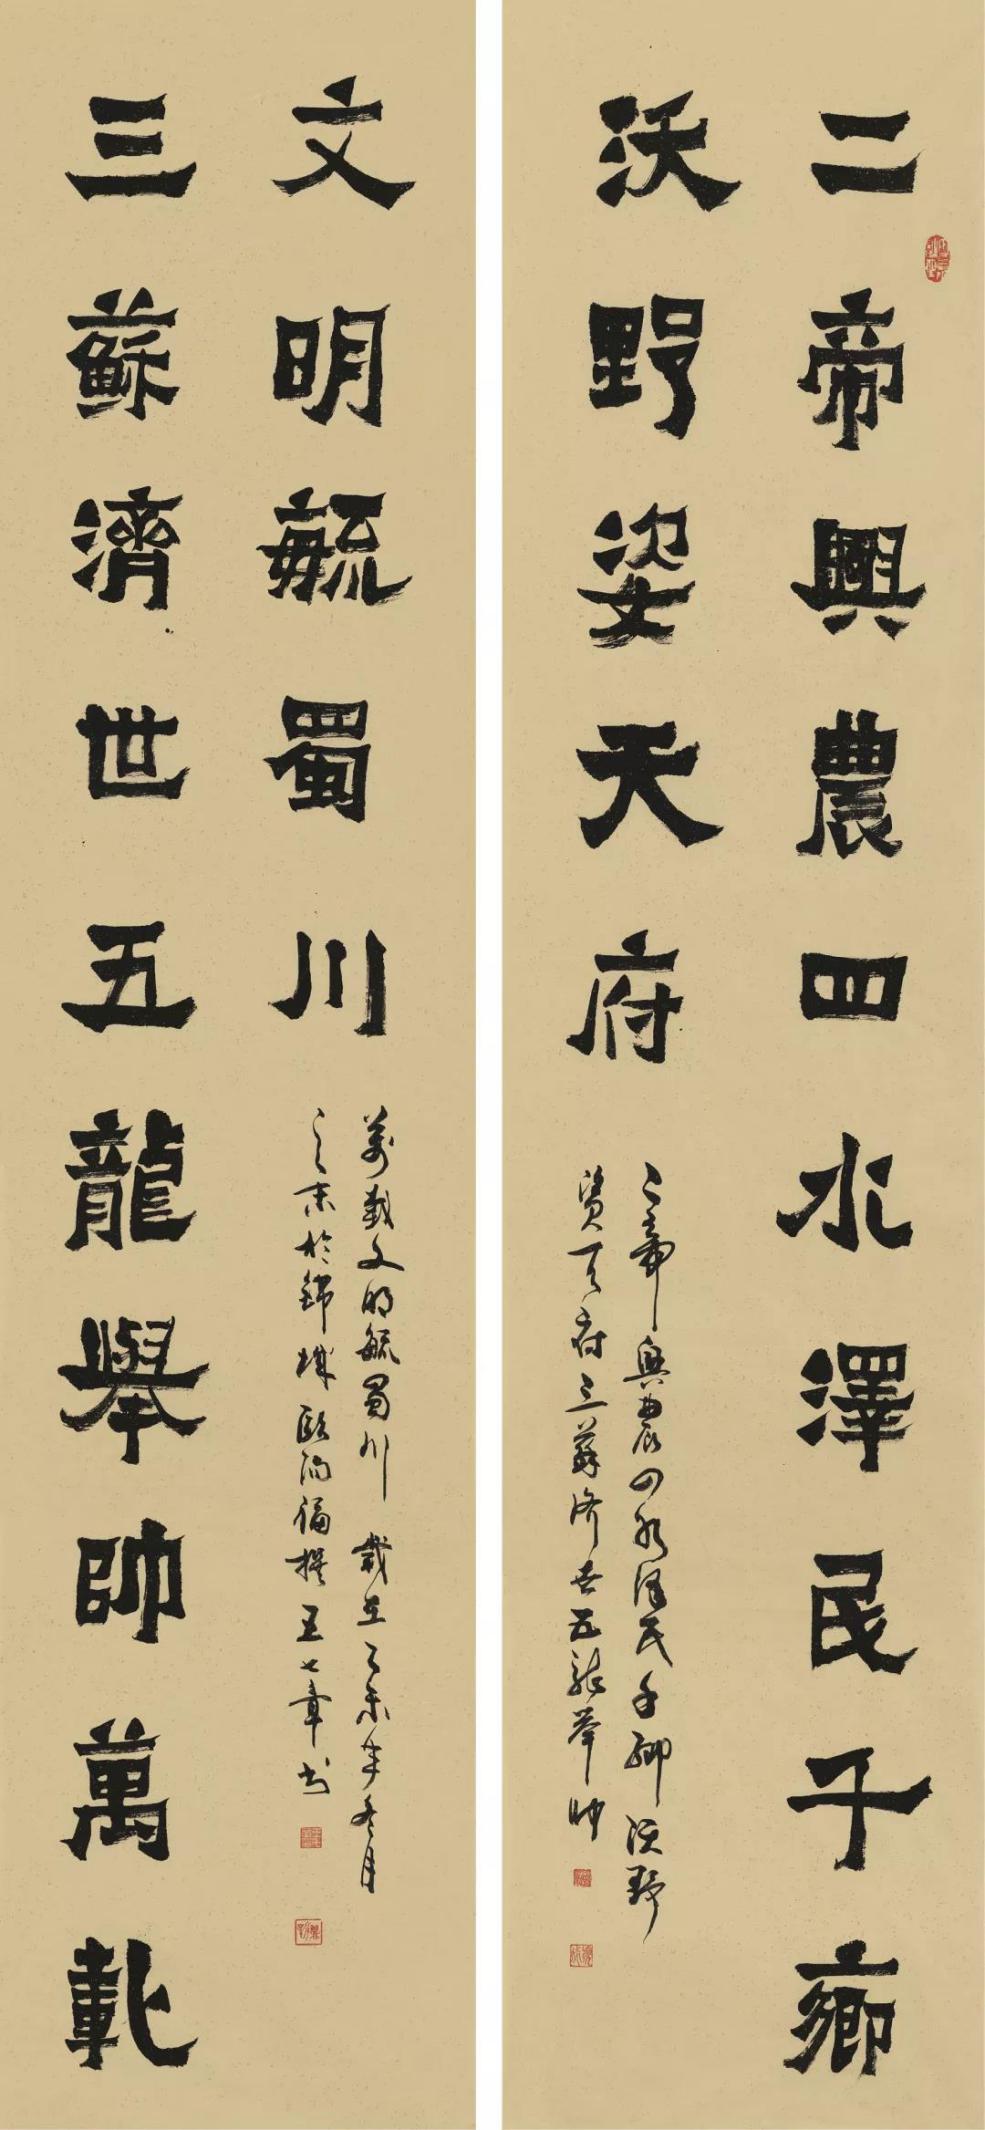 二帝興農四水澤民千鄉
沃野姿天府
二帝興農四水澤民千鄉沃野
資天府三蘇濟世五龍舉帥
三蘇濟世五龍舉帥萬載
文明毓蜀川
萬載文明毓蜀川 歲在乙未年冬月
之末於錦城歐陽撰王七章書